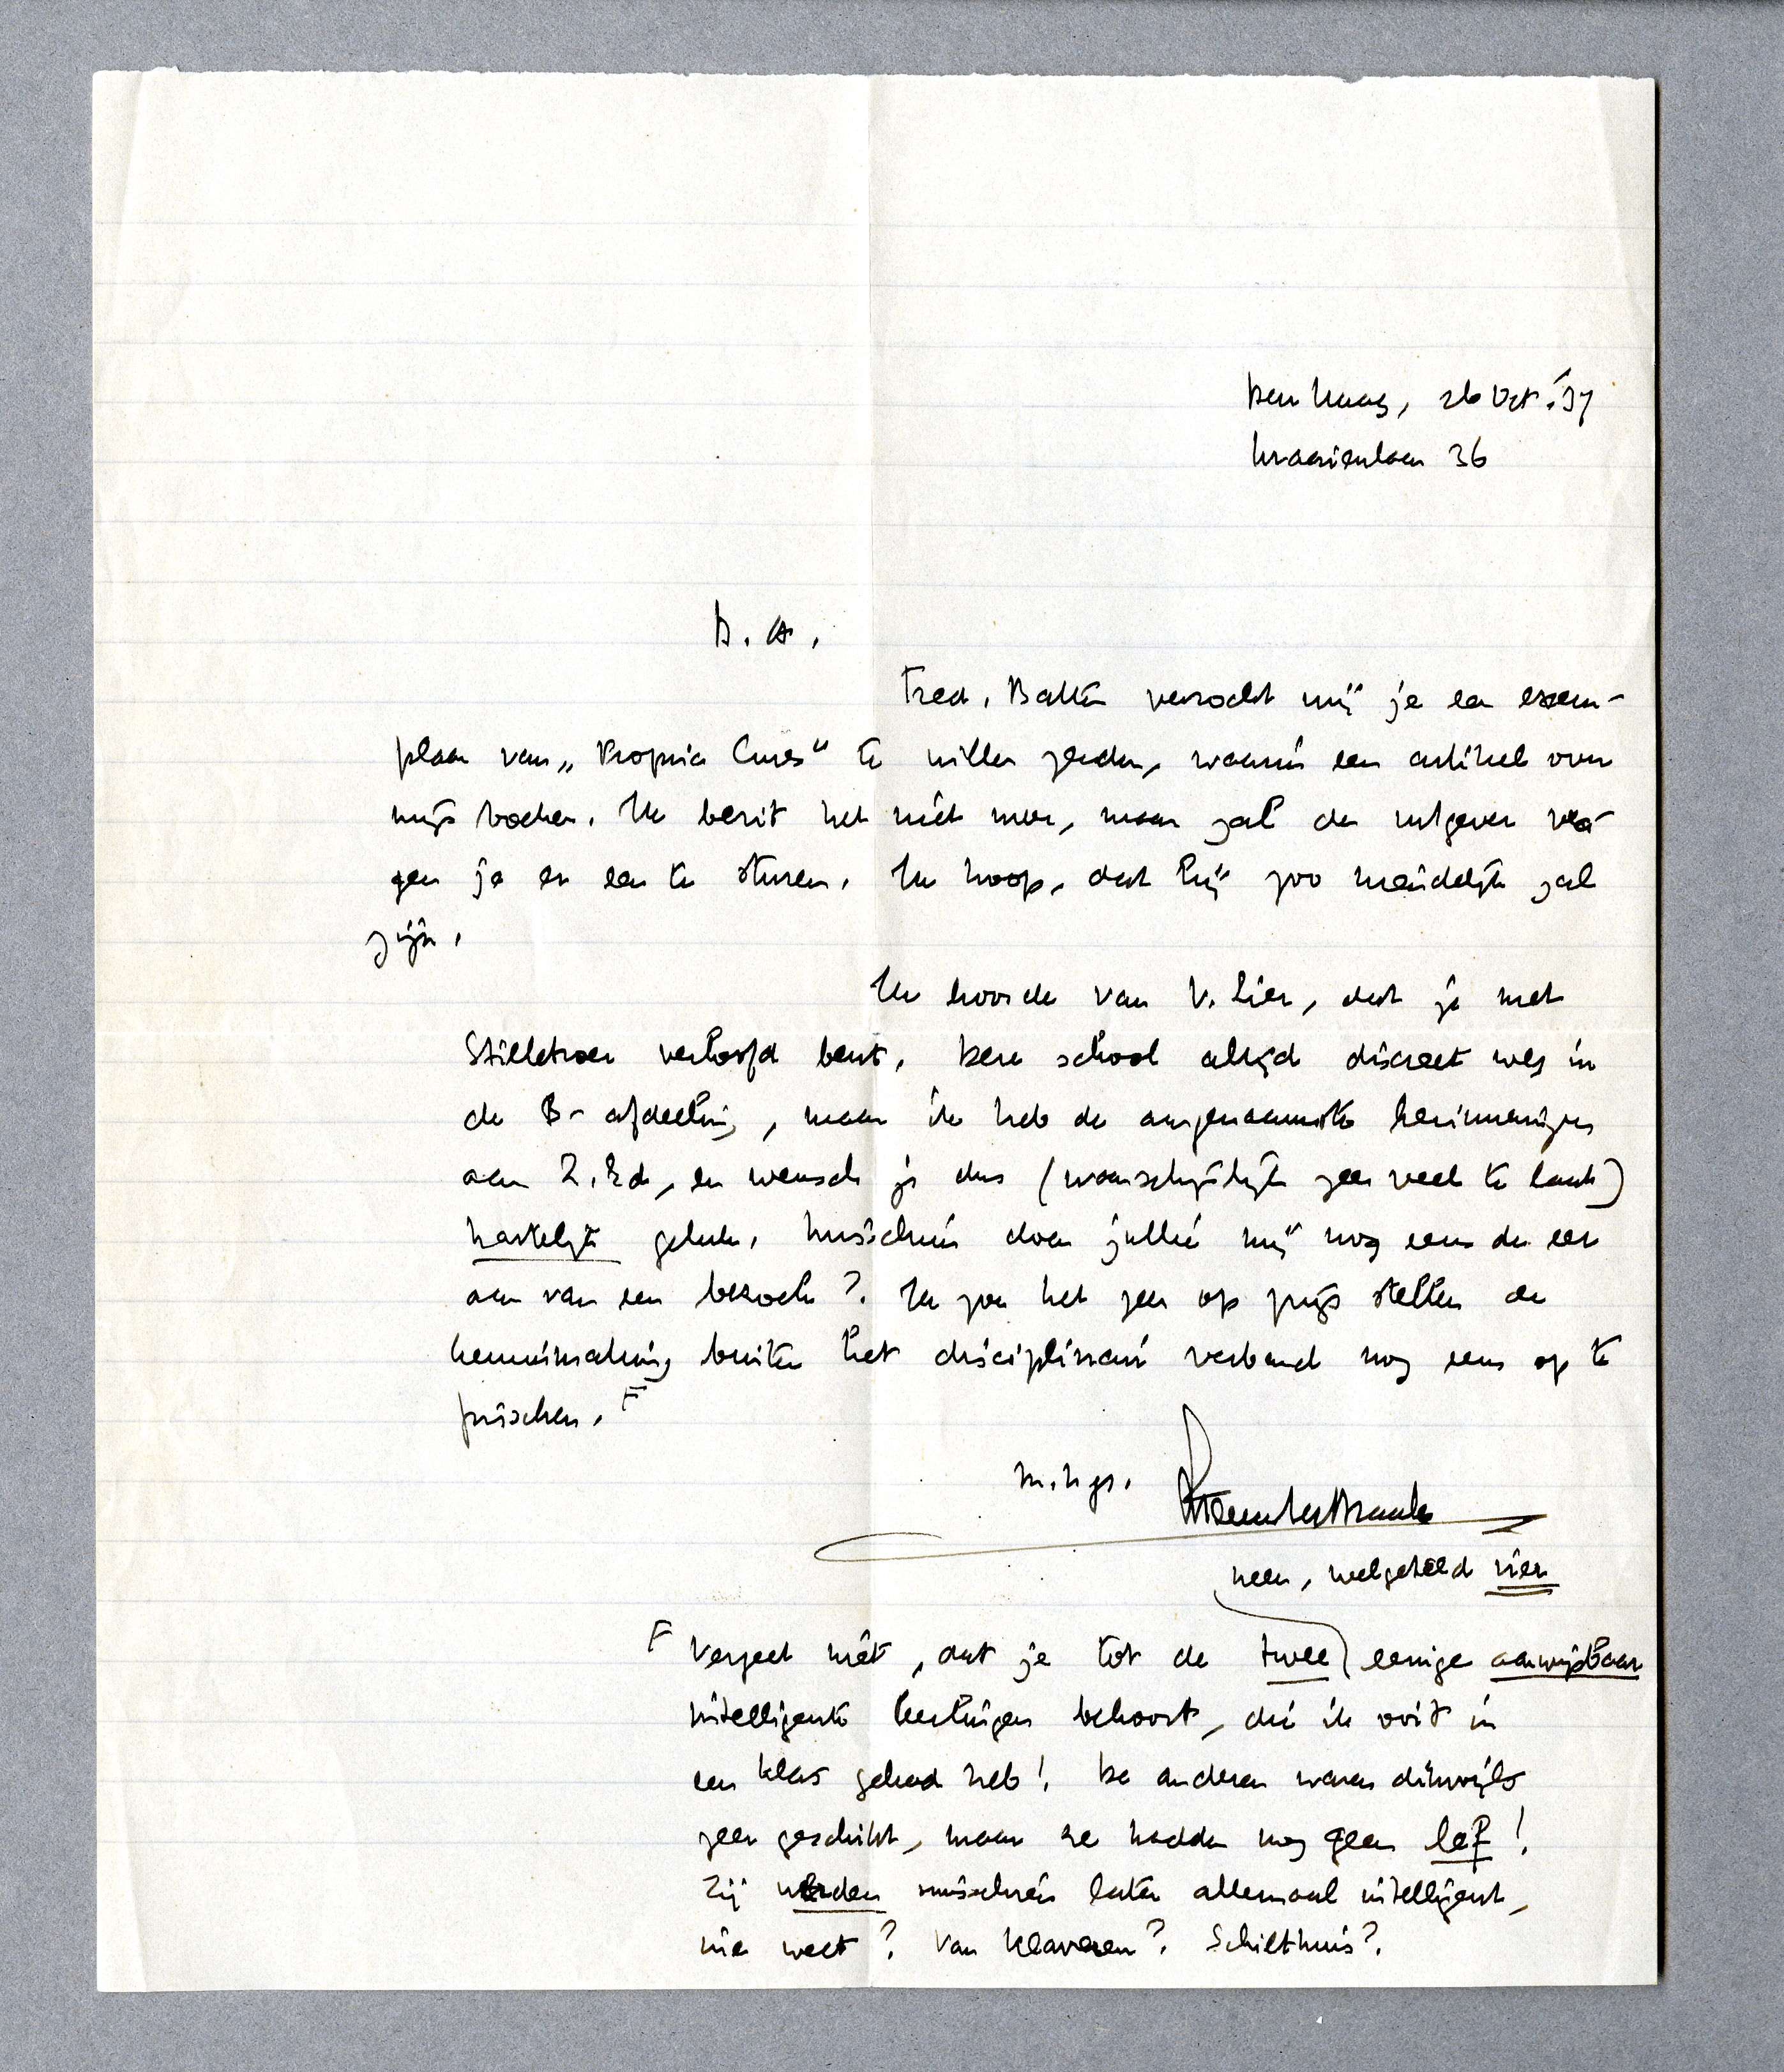 Den Haag, 26 Oct. '37
Kraaienlaan 36
B. A.,
Fred. Batten verzocht mij je een exem-
plaar van „Propria Cures" te willen zenden, waarin een artikel over
mijn boeken. Ik bezit het niet meer, maar zal de uitgever vra-
gen je er een te sturen. Ik hoop, dat hij zoo vriendelijk zal
zijn.
Ik hoorde van v. Lier, dat je met
verloofd bent. Deze school altijd discreet weg in
de B-afdeeling, maar ik heb de aangenaamste herinneringen
aan Z.Ed., en wensch je dus (waarschijnlijk zeer veel te laat)
hartelijk geluk. Misschien doen jullie mij nog eens de eer
aan van een bezoek? Ik zou het zeer op prijs stellen de
kennismaking buiten het disciplinair verband nog eens op te
frisschen. F
m.h.gr. Menno ter Braak
neen, welgeteld vier
F Vergeet niet, dat je tot de twee eenige aanwijsbaar
intelligente leerlingen behoort, die ik ooit in
een klas gehad heb! De anderen waren dikwijls
zeer geschikt, maar ze hadden nog geen lef!
Zij werden misschien later allemaal intelligent,
wie weet? Van Klaveren? Schilthuis?